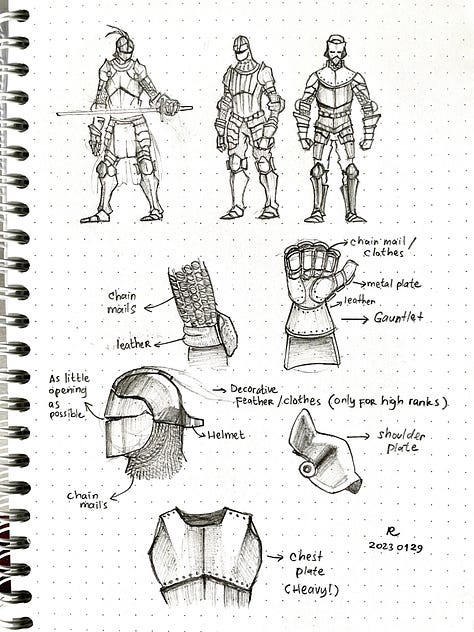 chain mail /
clothes
metal plate
leather
Gauntlet
chain
mails
leather
As little
opening
as
possible
Decorative
Feather/clothes (only for high ranks)
Helmet
shoulder
plate
chain
mails
R
20230129
chest
plate
(Heavy!)